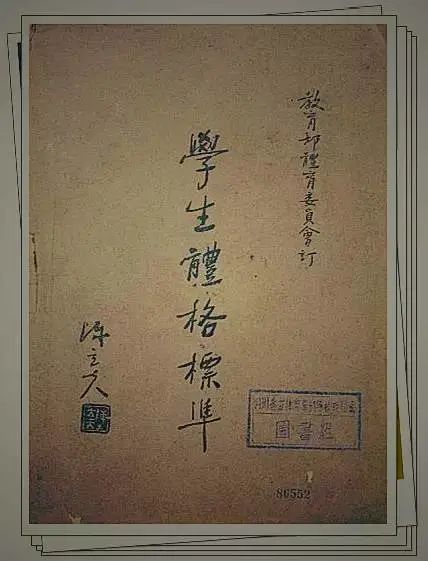 教育部體育委員會訂
學生體格標準
陳立夫
圖書館
86552